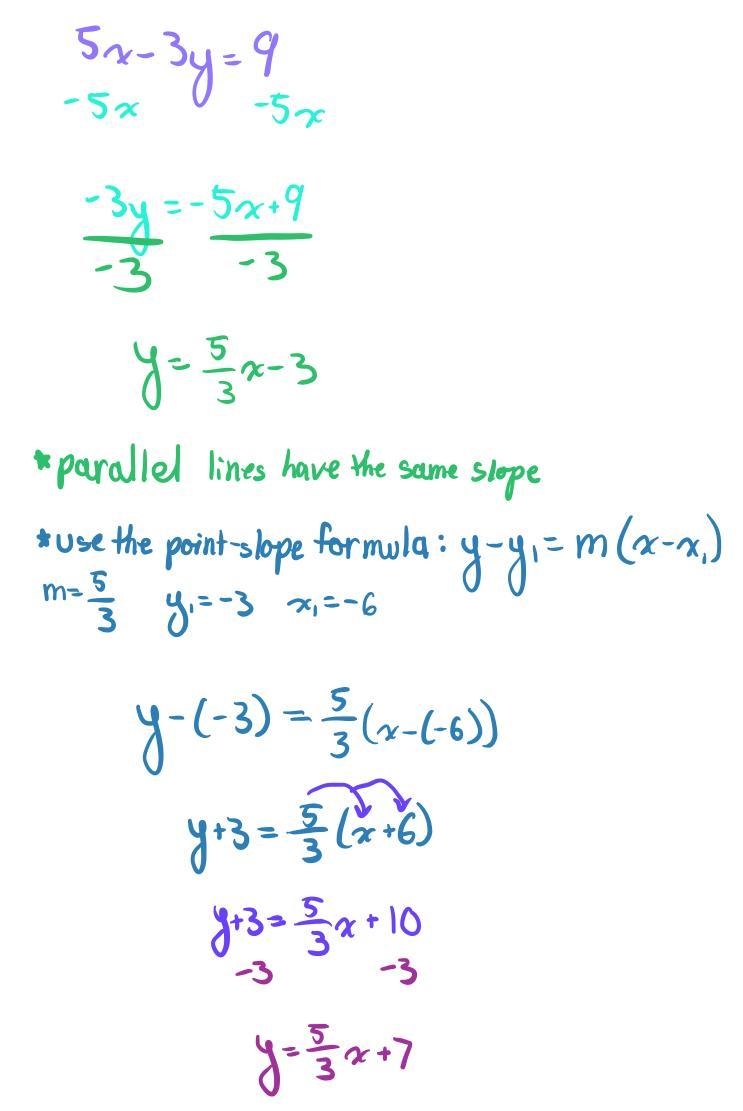 5x-3y=9
-5x -5x
-3y=-5x+9
-3 -3
y=5/3x-3
*parallel lines have the same slope
*use the point-slope formula: y-y₁=m(x-x₁)
m=5/3 y₁=-3 x₁=-6
y-(-3)=5/3(x-(-6))
y+3=5/3(x+6)
y+3=5/3x+10
-3 -3
y=5/3x+7